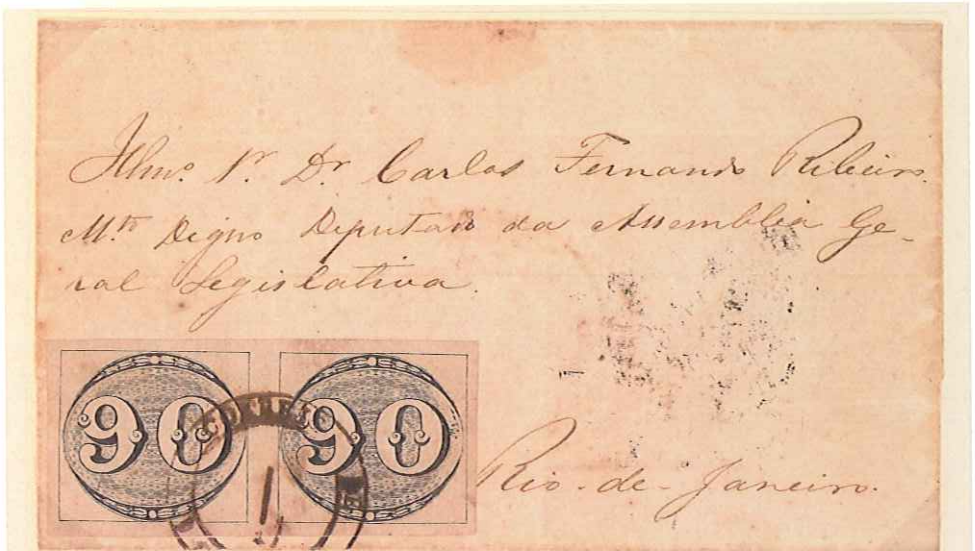 Illmo. Sr. Dr. Carlos Fernando Ribeiro.
M.to Digno Deputado da Assemblea Ge-
ral Legislativa.
90 90
Rio-de-Janeiro.